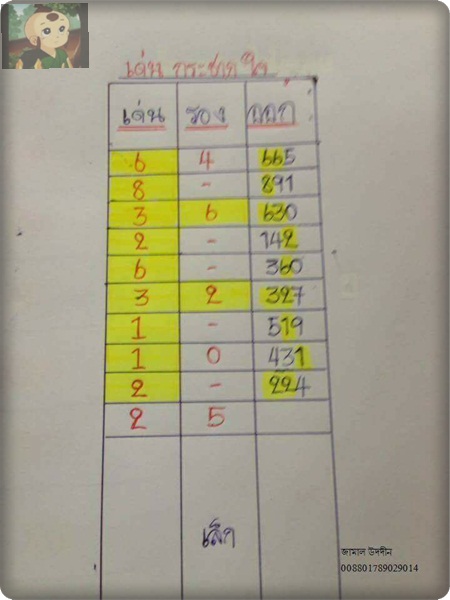 เด่น กระชากใจ
เด่น รอง ออก
6 4 665
8 - 891
3 6 630
2 - 142
6 - 360
3 2 327
1 - 519
1 0 431
2 - 224
2 5
เล็ก
জামাল উদদীন
008801789029014